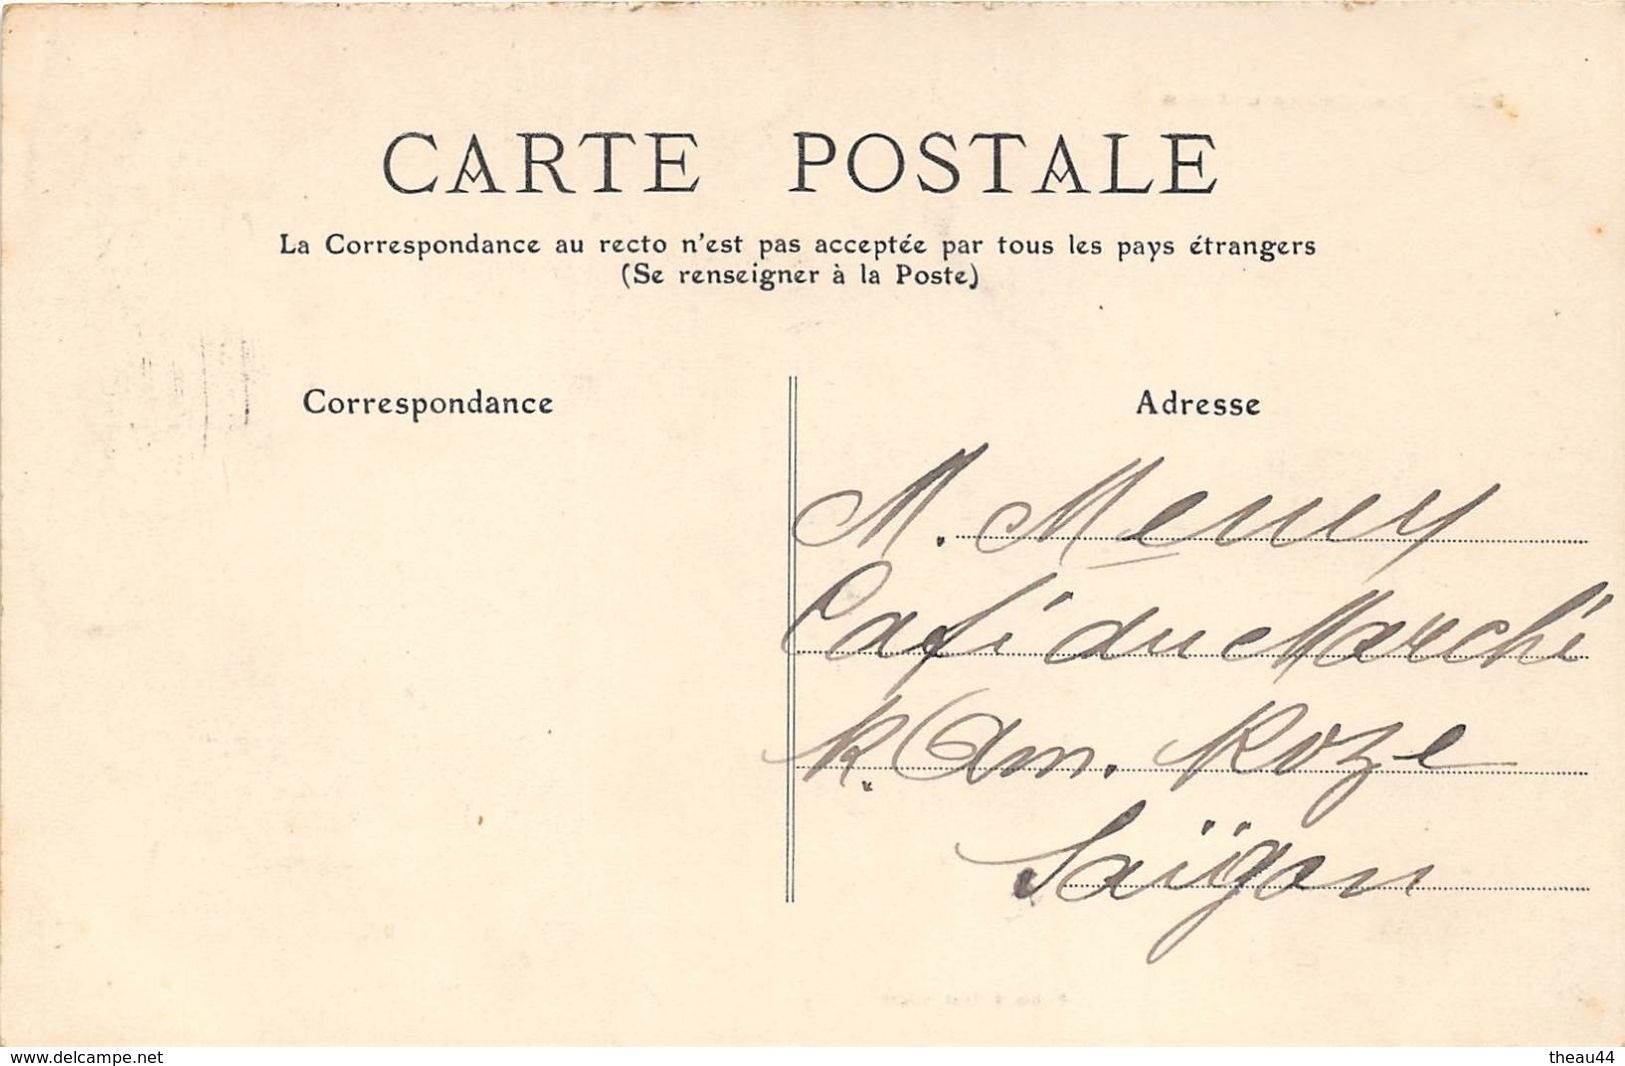 CARTE POSTALE
La Correspondance au recto n'est pas acceptée par tous les pays étrangers
(Se renseigner à la Poste)
Correspondance
Adresse
M.
Café du Marché
R. Am. Roze
Saïgon
www.delcampe.net
theau44